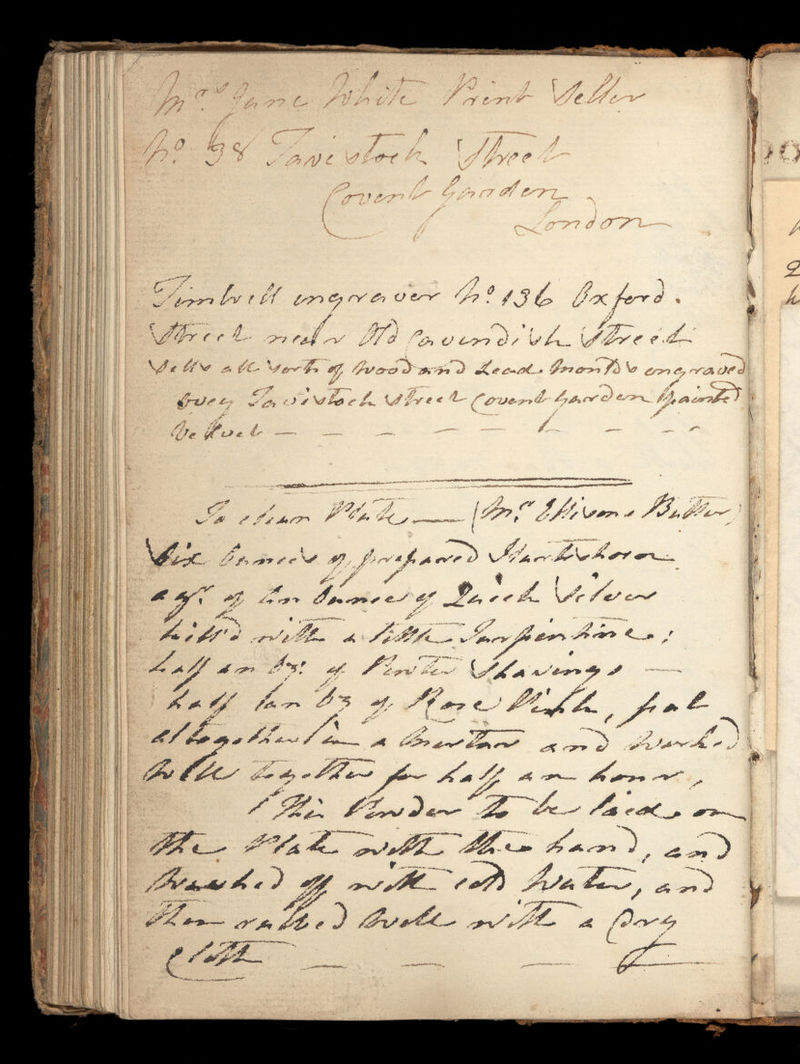 Mrs. Jane White Print Seller
No. 38 Tavistock Street
Covent Garden
London
Timbrell engraver No. 136 Oxford.
Street near Old Cavendish Street
Sells all sorts of Wood and Lead Moulds engraved
Tavistock Street Covent Garden painted
Velvet — — — — — — — —
To clean Plate — (Mrs. Ellisons Butler)
Six Ounces of prepared Hartshorn
a qr. of An Ounce of Quick Silver
kill'd with a little Turpentine;
half an Oz: of Pewter Shavings —
half an Oz of Rose Pink, put
altogether in a Mortar and Worked
Well together for half an hour,
This Powder to be laid on
the Plate with the hand, and
Washed off with cold Water, and
then rubbed Well with a Dry
Cloth — — — —